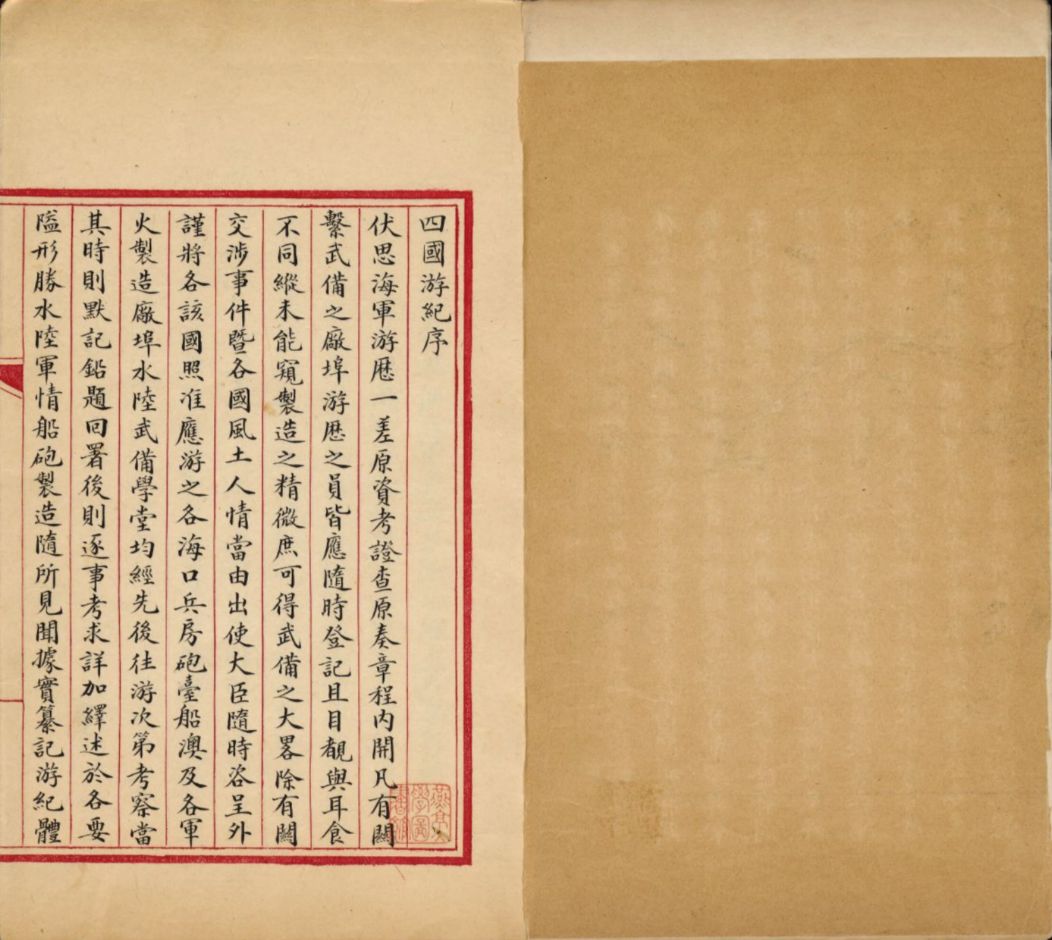 四國游紀序
伏思海軍游厯一差原資考證查原奏章程內開凡有關
繫武備之廠埠游厯之員皆應隨時登記且目覩與耳食
不同縱未能窺製造之精微庶可得武備之大畧除有關
交涉事件暨各國風土人情當由出使大臣隨時咨呈外
謹將各該國照准應游之各海口兵房砲臺船澳及各軍
火製造廠埠水陸武備學堂均經先後往游次第考察當
其時則默記鉛題回署後則逐事考求詳加繹述於各要
隘形勝水陸軍情船砲製造隨所見聞據實纂記游紀體
燕京大學圖書館